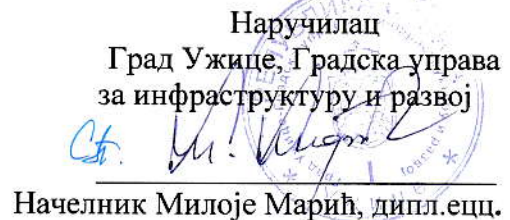 Наручилац
Град Ужице, Градска управа
за инфраструктуру и развој
Начелник Милоје Марић, дипл.ецц.